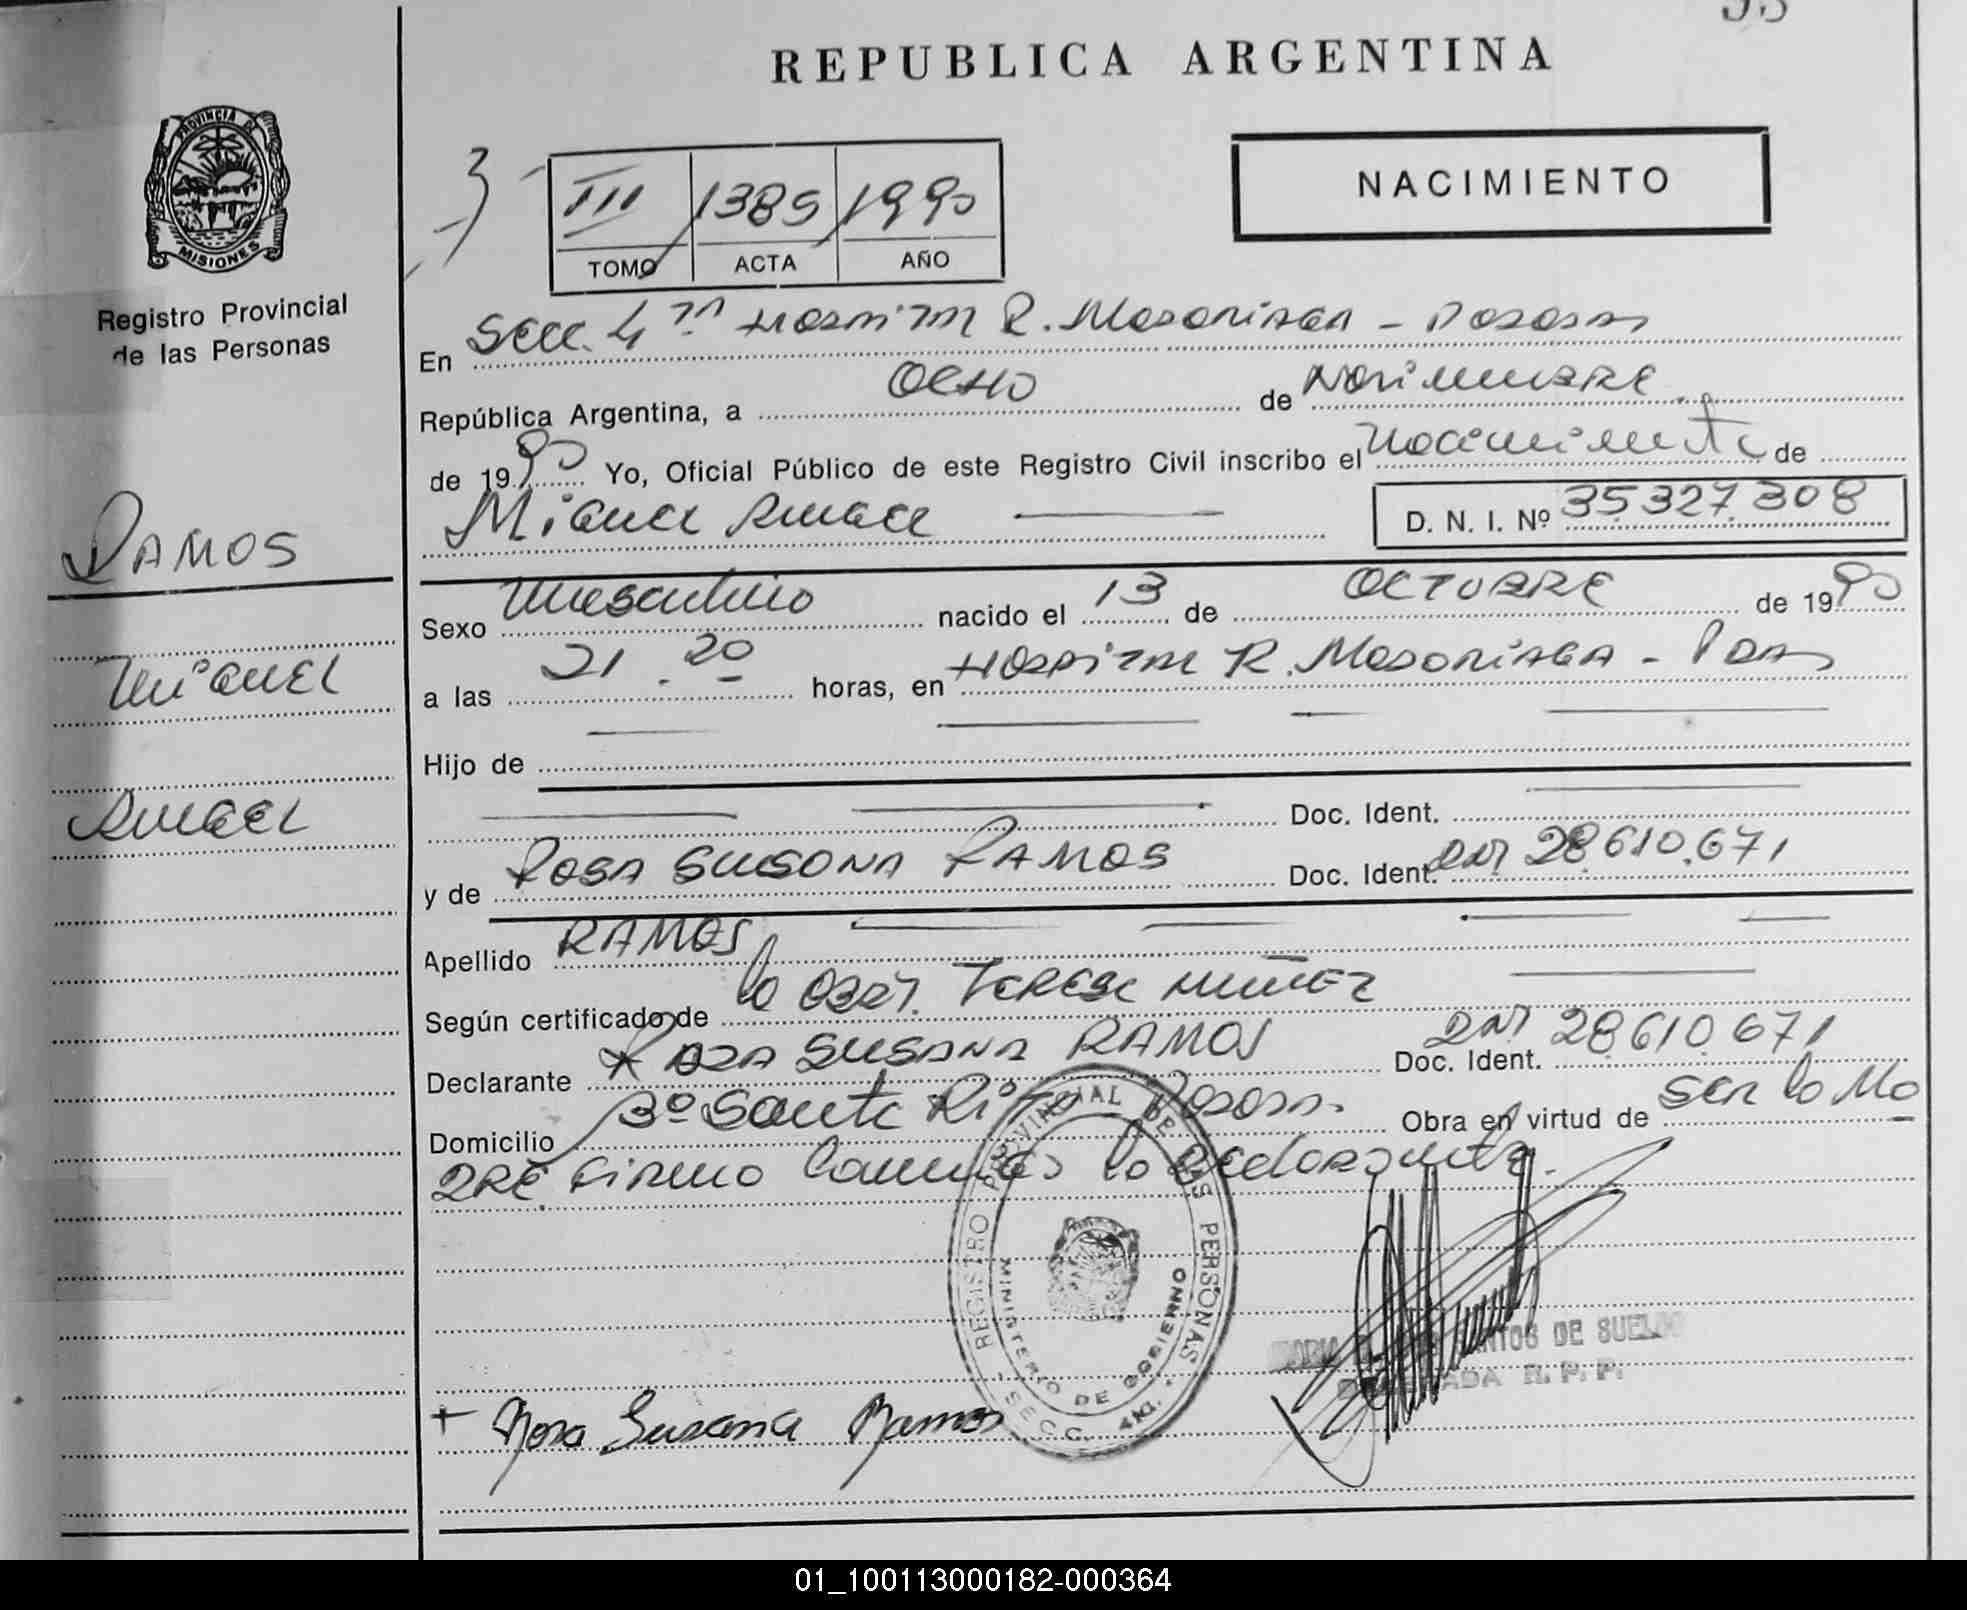 REPUBLICA ARGENTINA
PROVINCIA DE
MISIONES
Registro Provincial
de las Personas
NACIMIENTO
III 1385 1990
TOMO ACTA AÑO
En Secc. 4ta Hospital R. Madariaga - Posadas
República Argentina, a OCHO de Noviembre
de 1990 Yo, Oficial Público de este Registro Civil inscribo el nacimiento de
Miguel Angel
D. N. I. Nº 35.327.308
RAMOS
Miguel
Angel
Sexo Masculino nacido el 13 de OCTUBRE de 1990
a las 21.20 horas, en Hospital R. Madariaga - Pdas
Hijo de
Doc. Ident.
y de ROSA SUSANA RAMOS Doc. Ident. DNI 28.610.671
Apellido RAMOS
Según certificado de la Obst. Teresa Nuñez
Declarante ROSA SUSANA RAMOS Doc. Ident. DNI 28.610.671
Domicilio Bº Santa Rita Posadas. Obra en virtud de ser la Ma
dre firma la declarante.
REGISTRO PROVINCIAL DE LAS PERSONAS
MINISTERIO DE GOBIERNO
SECC. 4ta.
DE SUELDO
R. P. P.
+ Rosa Susana Ramos
01_100113000182-000364